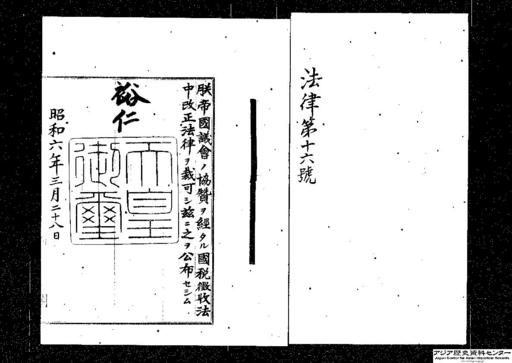 法律第十六號
朕帝國議會ノ協贊ヲ經タル國税徴收法
中改正法律ヲ裁可シ茲ニ之ヲ公布セシム
裕仁
天皇御璽
昭和六年三月二十八日
アジア歴史資料センター
Japan Center for Asian Historical Records